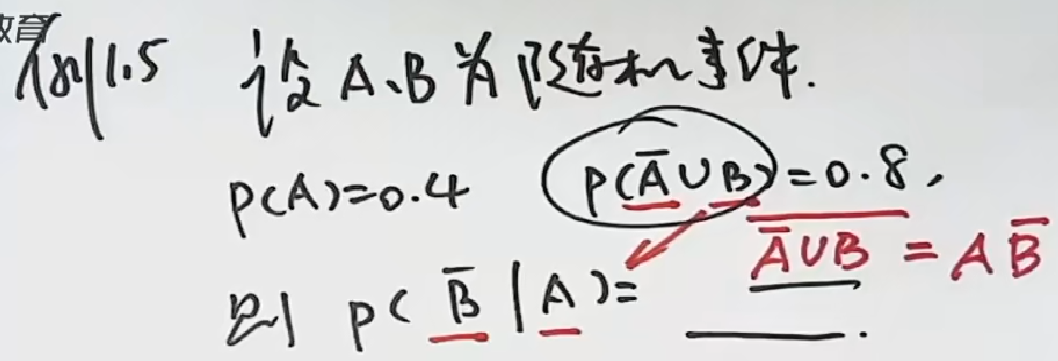 教育
例1.5 设 A、B 为随机事件.
P(A)=0.4 P(A̅∪B)=0.8,
A̅∪B̅ = AB̅
则 P(B̅|A)= ______.